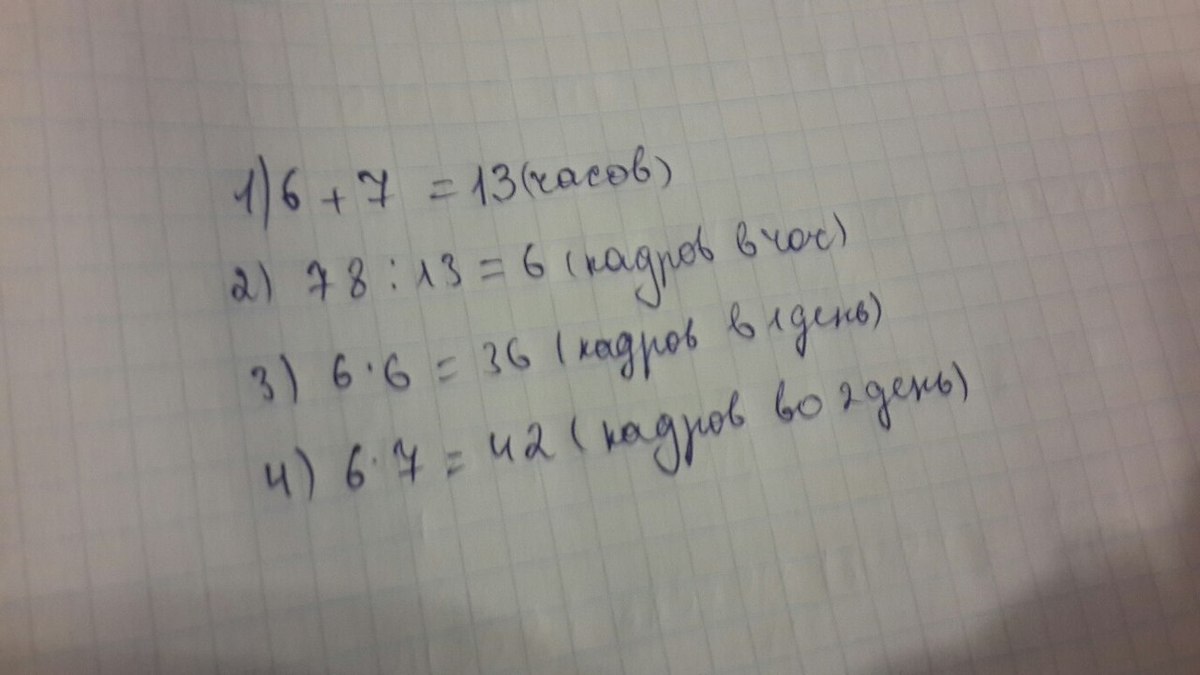 1) 6 + 7 = 13 (часов)
2) 78 : 13 = 6 (кадров в час)
3) 6 · 6 = 36 (кадров в 1 день)
4) 6 · 7 = 42 (кадров во 2 день)